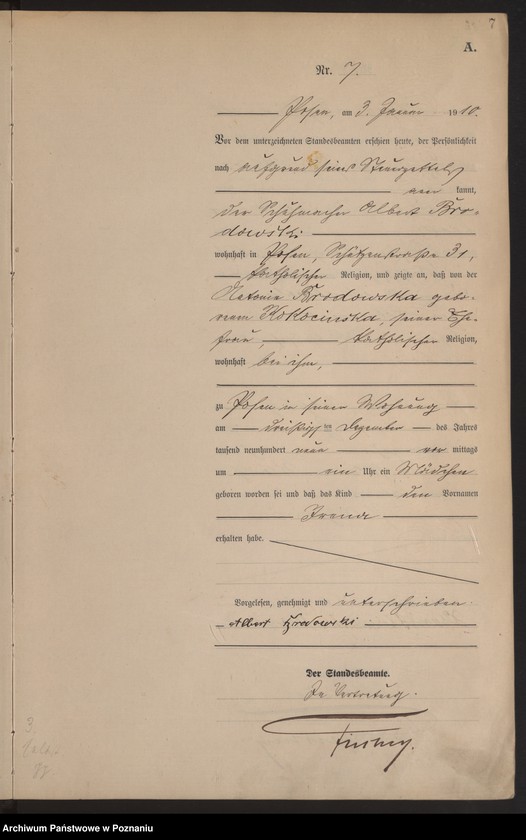 7
A.
Nr. 7.
Posen, am 3. Januar 1910.
Vor dem unterzeichneten Standesbeamten erschien heute, der Persönlichkeit
nach auf Grund seines Steuerzettels
aner kannt,
der Schuhmacher Albert Bro-
dowski
wohnhaft in Posen, Schützenstraße 31,
katholischer Religion, und zeigte an, daß von der
Antonie Brodowska gebo-
renen Kokocinska, seiner Ehe-
frau, katholischer Religion,
wohnhaft bei ihm,
zu Posen in seiner Wohnung
am dreißigsten Dezember des Jahres
tausend neunhundert neun vor mittags
um ein Uhr ein Mädchen
geboren worden sei und daß das Kind den Vornamen
Irena
erhalten habe.
Vorgelesen, genehmigt und unterschrieben.
Albert Brodowski
Der Standesbeamte.
In Vertretung.
3
Archiwum Państwowe w Poznaniu